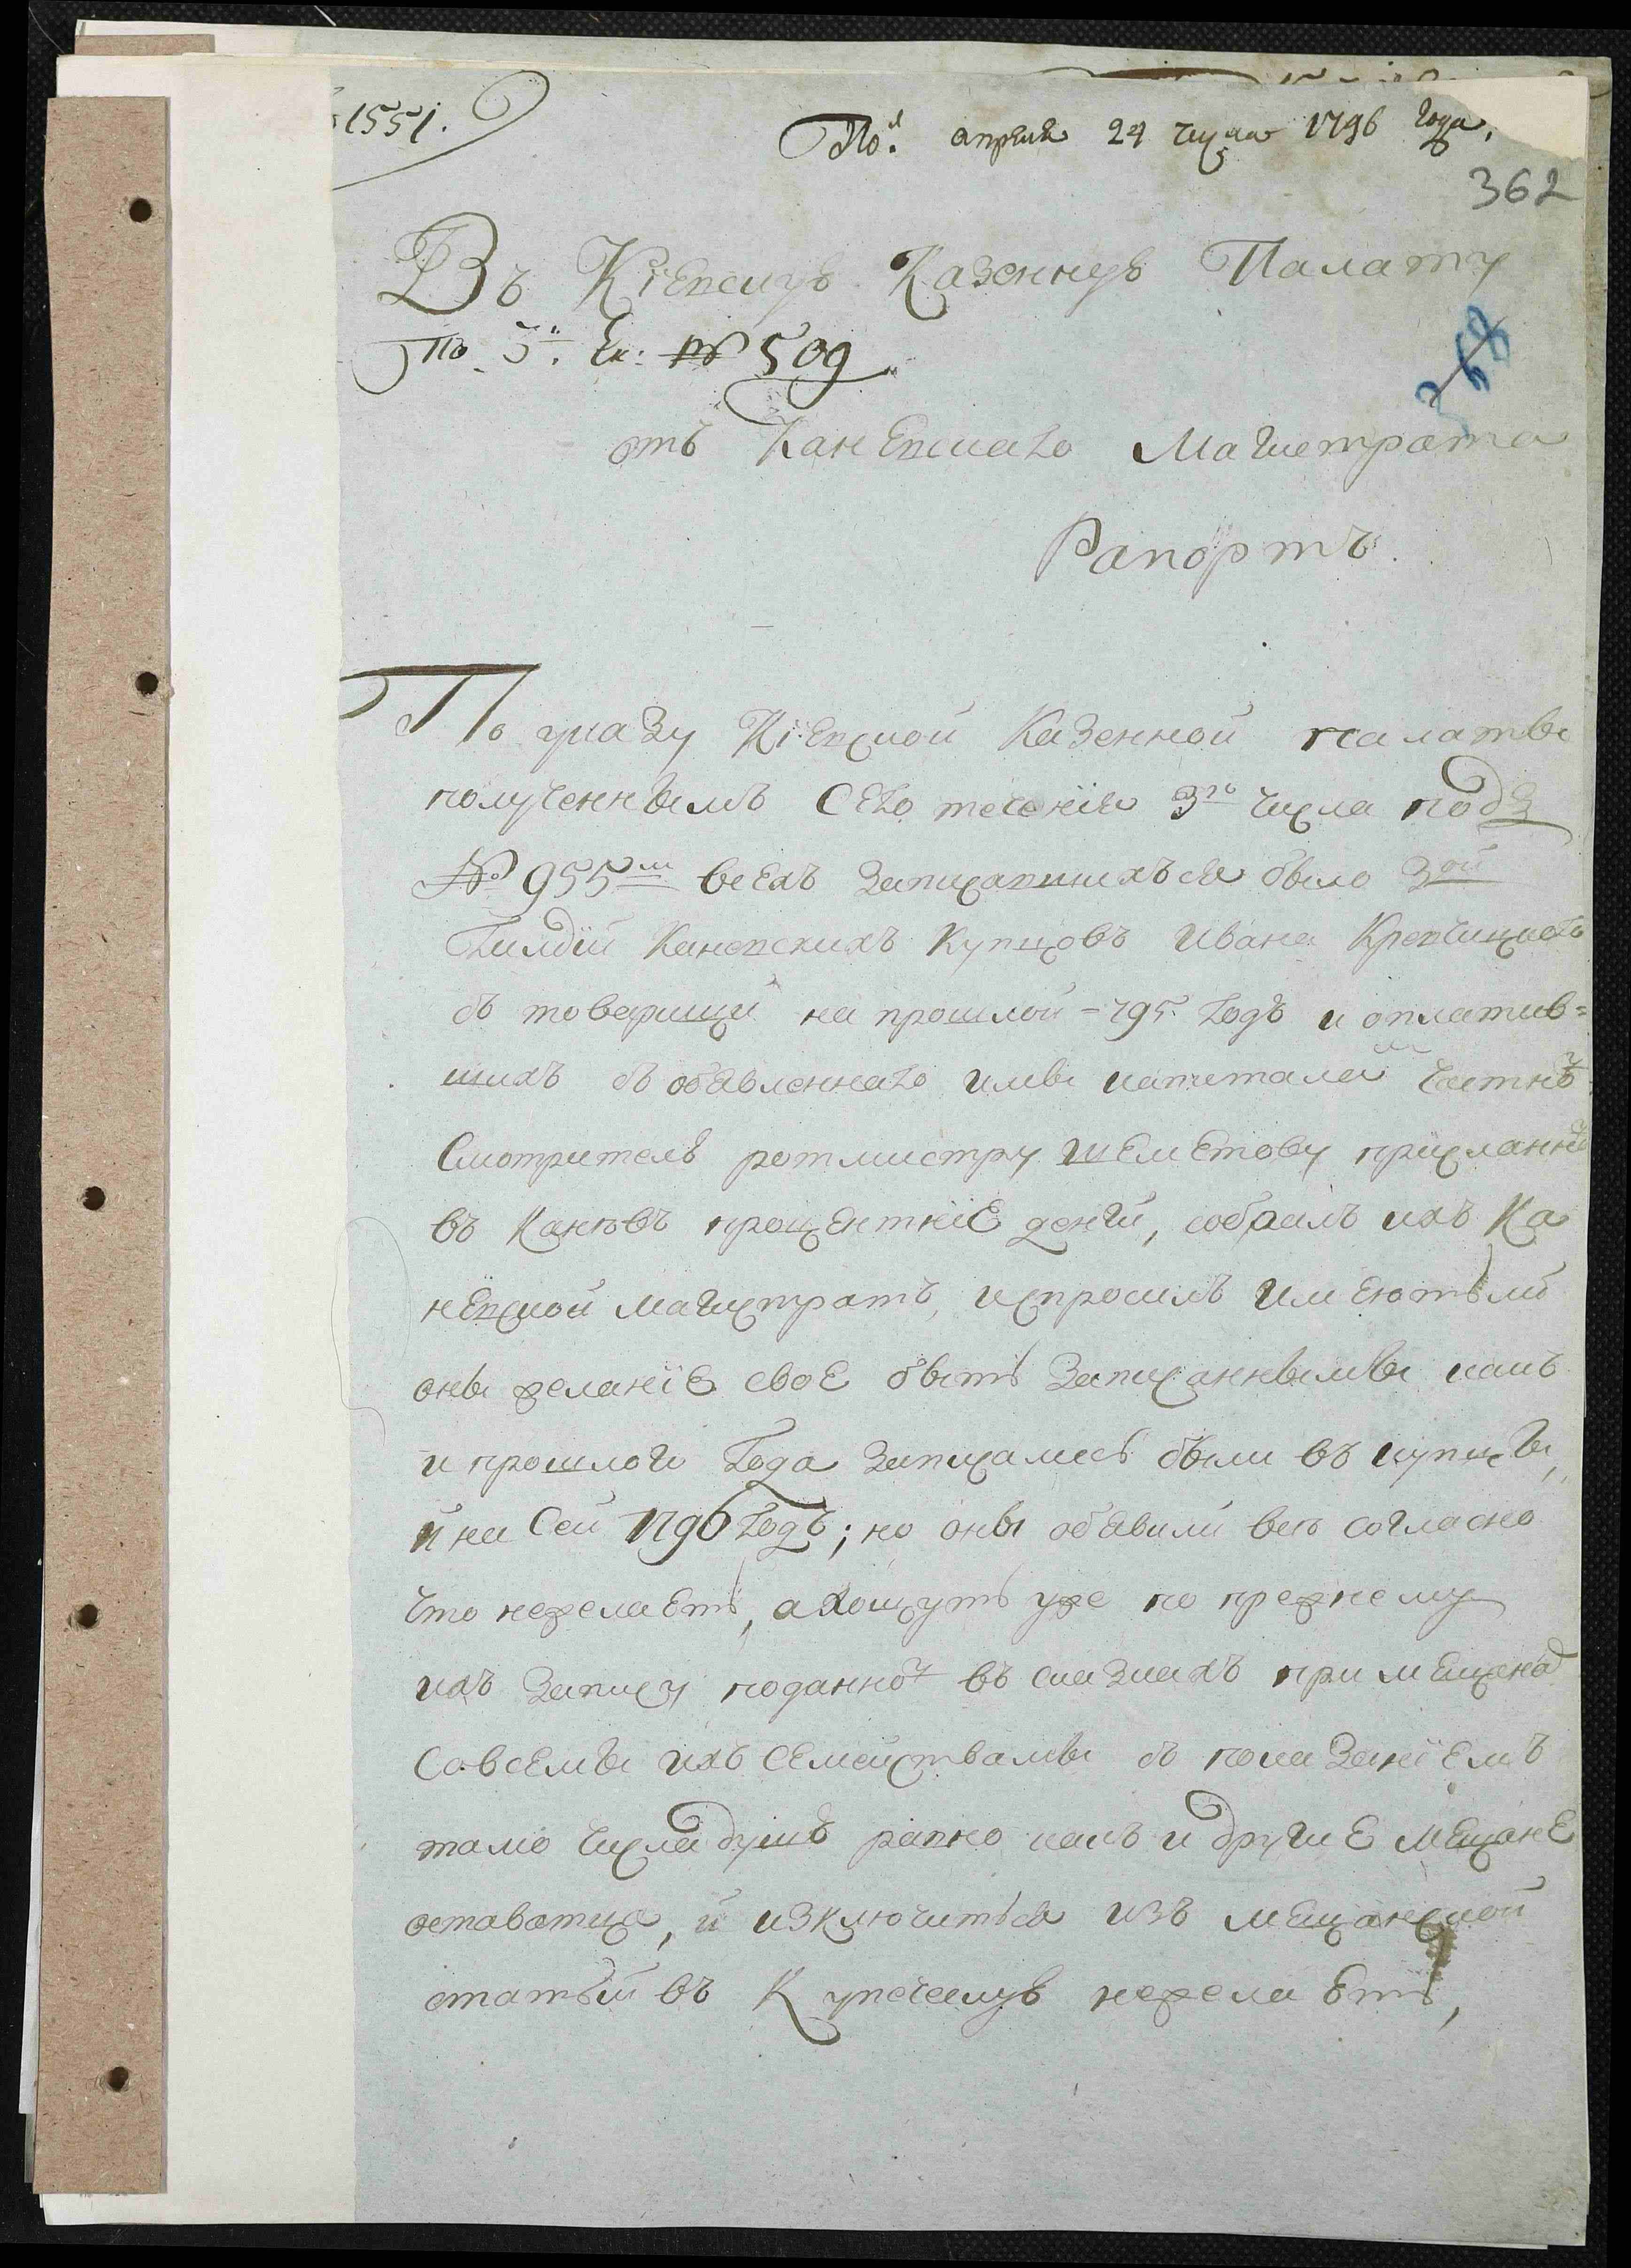 1551.
По.л апреля 24 числа 1796 года,
362
Въ Кіевскую Казенную Палату
По 3й. Ек: № 509
368
отъ Каневскаго Магистрата
Рапортъ.
По указу Кіевской Казенной палаты
полученнымъ сего теченія 3го числа подъ
№ 955м всехъ записавшихъся было 3ой
Гилдіи Каневскихъ Купцовъ Ивана Кревчицкаго
съ товарищи на прошлой -795. годъ и оплатив=
шихъ съ обявленнаго имы капитала
Смотрителю ротмистру Шеметову присланно
въ Каневъ процентніе денги, собралъ ихъ Ка
невской магистратъ, и спросилъ имеютъли
оны желаніе свое быть записаннымы какъ
и прошлого года записались были въ купцы,
и на сей 1796 годъ; но оны обявили всъ согласно
что нежелаетъ, а хощутъ уже по прежнему
ихъ запису поданной въ сказкахъ при мещанах
Со всемы ихъ семействамы съ показаніемъ
тамо числа душъ равно какъ и другие мещане
оставатца, и изключиться изъ мещанской
статьи въ Купеческую нежелаетъ,